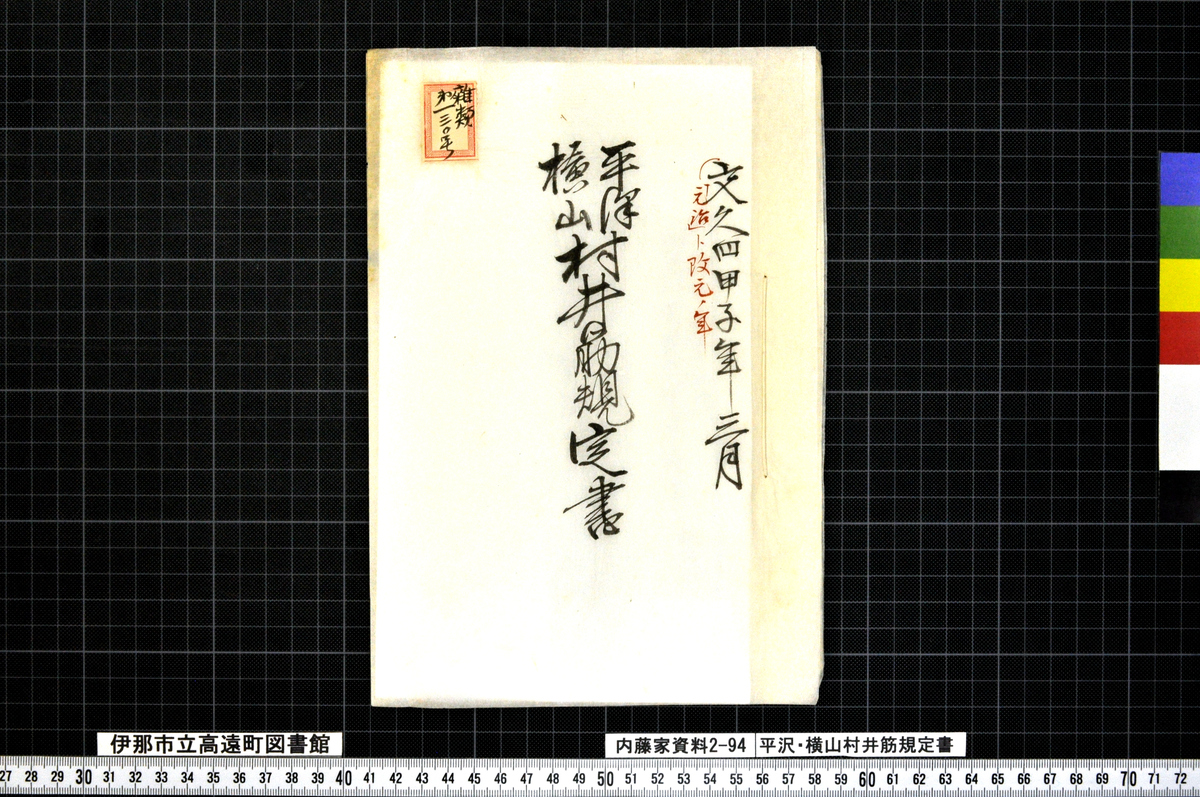 文久四甲子年三月
(元治ト改元ノ年
平澤
横山
村井筋規定書
雑類
第一三〇号
伊那市立高遠町図書館
内藤家資料2-94
平沢・横山村井筋規定書
27 28 29 30 31 32 33 34 35 36 37 38 39 40 41 42 43 44 45 46 47 48 49 50 51 52 53 54 55 56 57 58 59 60 61 62 63 64 65 66 67 68 69 70 71 72